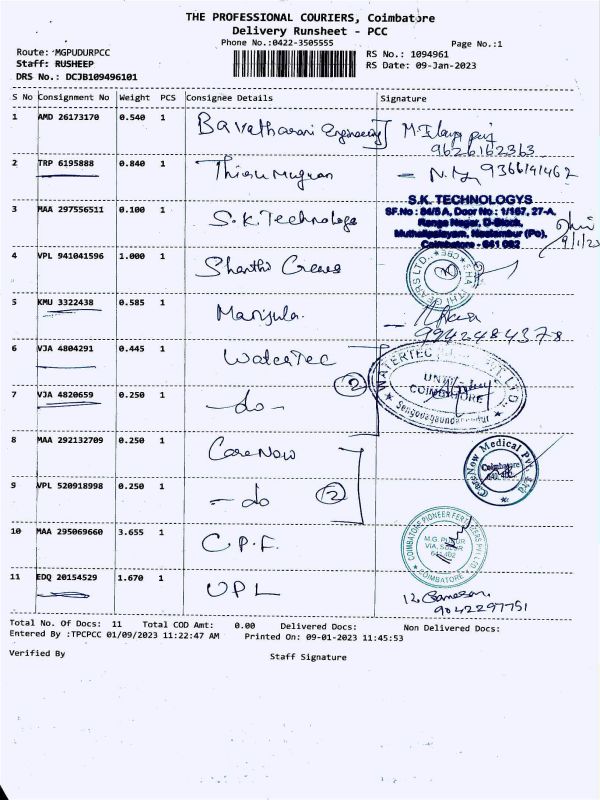 THE PROFESSIONAL COURIERS, Coimbatore
Delivery Runsheet - PCC
Phone No.:0422-3505555
Page No.:1
Route: MGPUDURPCC
RS No.: 1094961
Staff: RUSHEEP
RS Date: 09-Jan-2023
DRS No.: DCJB109496101
S No Consignment No Weight PCS Consignee Details Signature
1 AMD 26173170 0.540 1 Bavatharani Engineering
9626162363
2 TRP 6195888 0.840 1 Thirumugan
9366141462
3 MAA 297556511 0.100 1 S.K Technologs
S.K. TECHNOLOGYS
SF.No : 84/5 A, Door No : 1/167, 27-A,
Ranga Nagar, D-Block,
Muthalipalayam, Neelambur (Po),
Coimbatore - 641 062
9/1/23
4 VPL 941041596 1.000 1 Shanthi Gears
SHANTHI GEARS LTD., CBE
5 KMU 3322438 0.585 1 Manjula
9942484378
6 VJA 4804291 0.445 1 WaterTec
2
WATERTEC PVT. LTD.
UNIT
COIMBATORE
7 VJA 4820659 0.250 1 -do-
8 MAA 292132709 0.250 1 CareNow
CareNow Medical Pvt. Ltd
Coimbatore
9 VPL 520918998 0.250 1 -do
2
10 MAA 295069660 3.655 1 C.P.F.
COIMBATORE PIONEER FERTILIZERS PVT LTD
M.G. PUDUR
VIA, SULUR
641 402
COIMBATORE
11 EDQ 20154529 1.670 1 UPL
9042297751
Total No. Of Docs: 11 Total COD Amt: 0.00 Delivered Docs: Non Delivered Docs:
Entered By :TPCPCC 01/09/2023 11:22:47 AM Printed On: 09-01-2023 11:45:53
Verified By Staff Signature